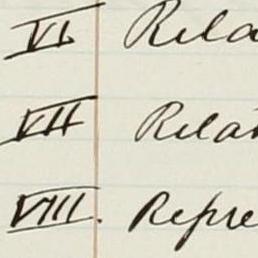 VI Rela
VII Relat
VIII. Repre